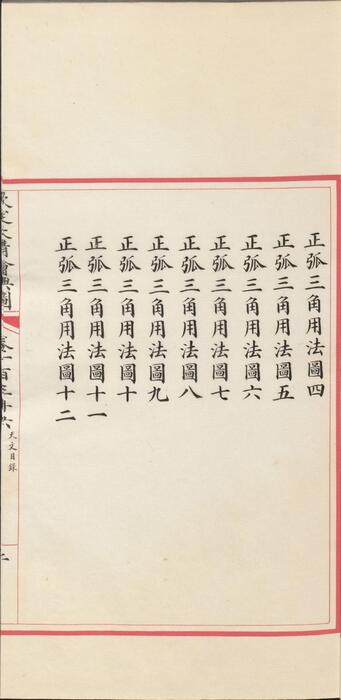 正弧三角用法圖四
正弧三角用法圖五
正弧三角用法圖六
正弧三角用法圖七
正弧三角用法圖八
正弧三角用法圖九
正弧三角用法圖十
正弧三角用法圖十一
正弧三角用法圖十二
欽定大清會典圖
天文目錄